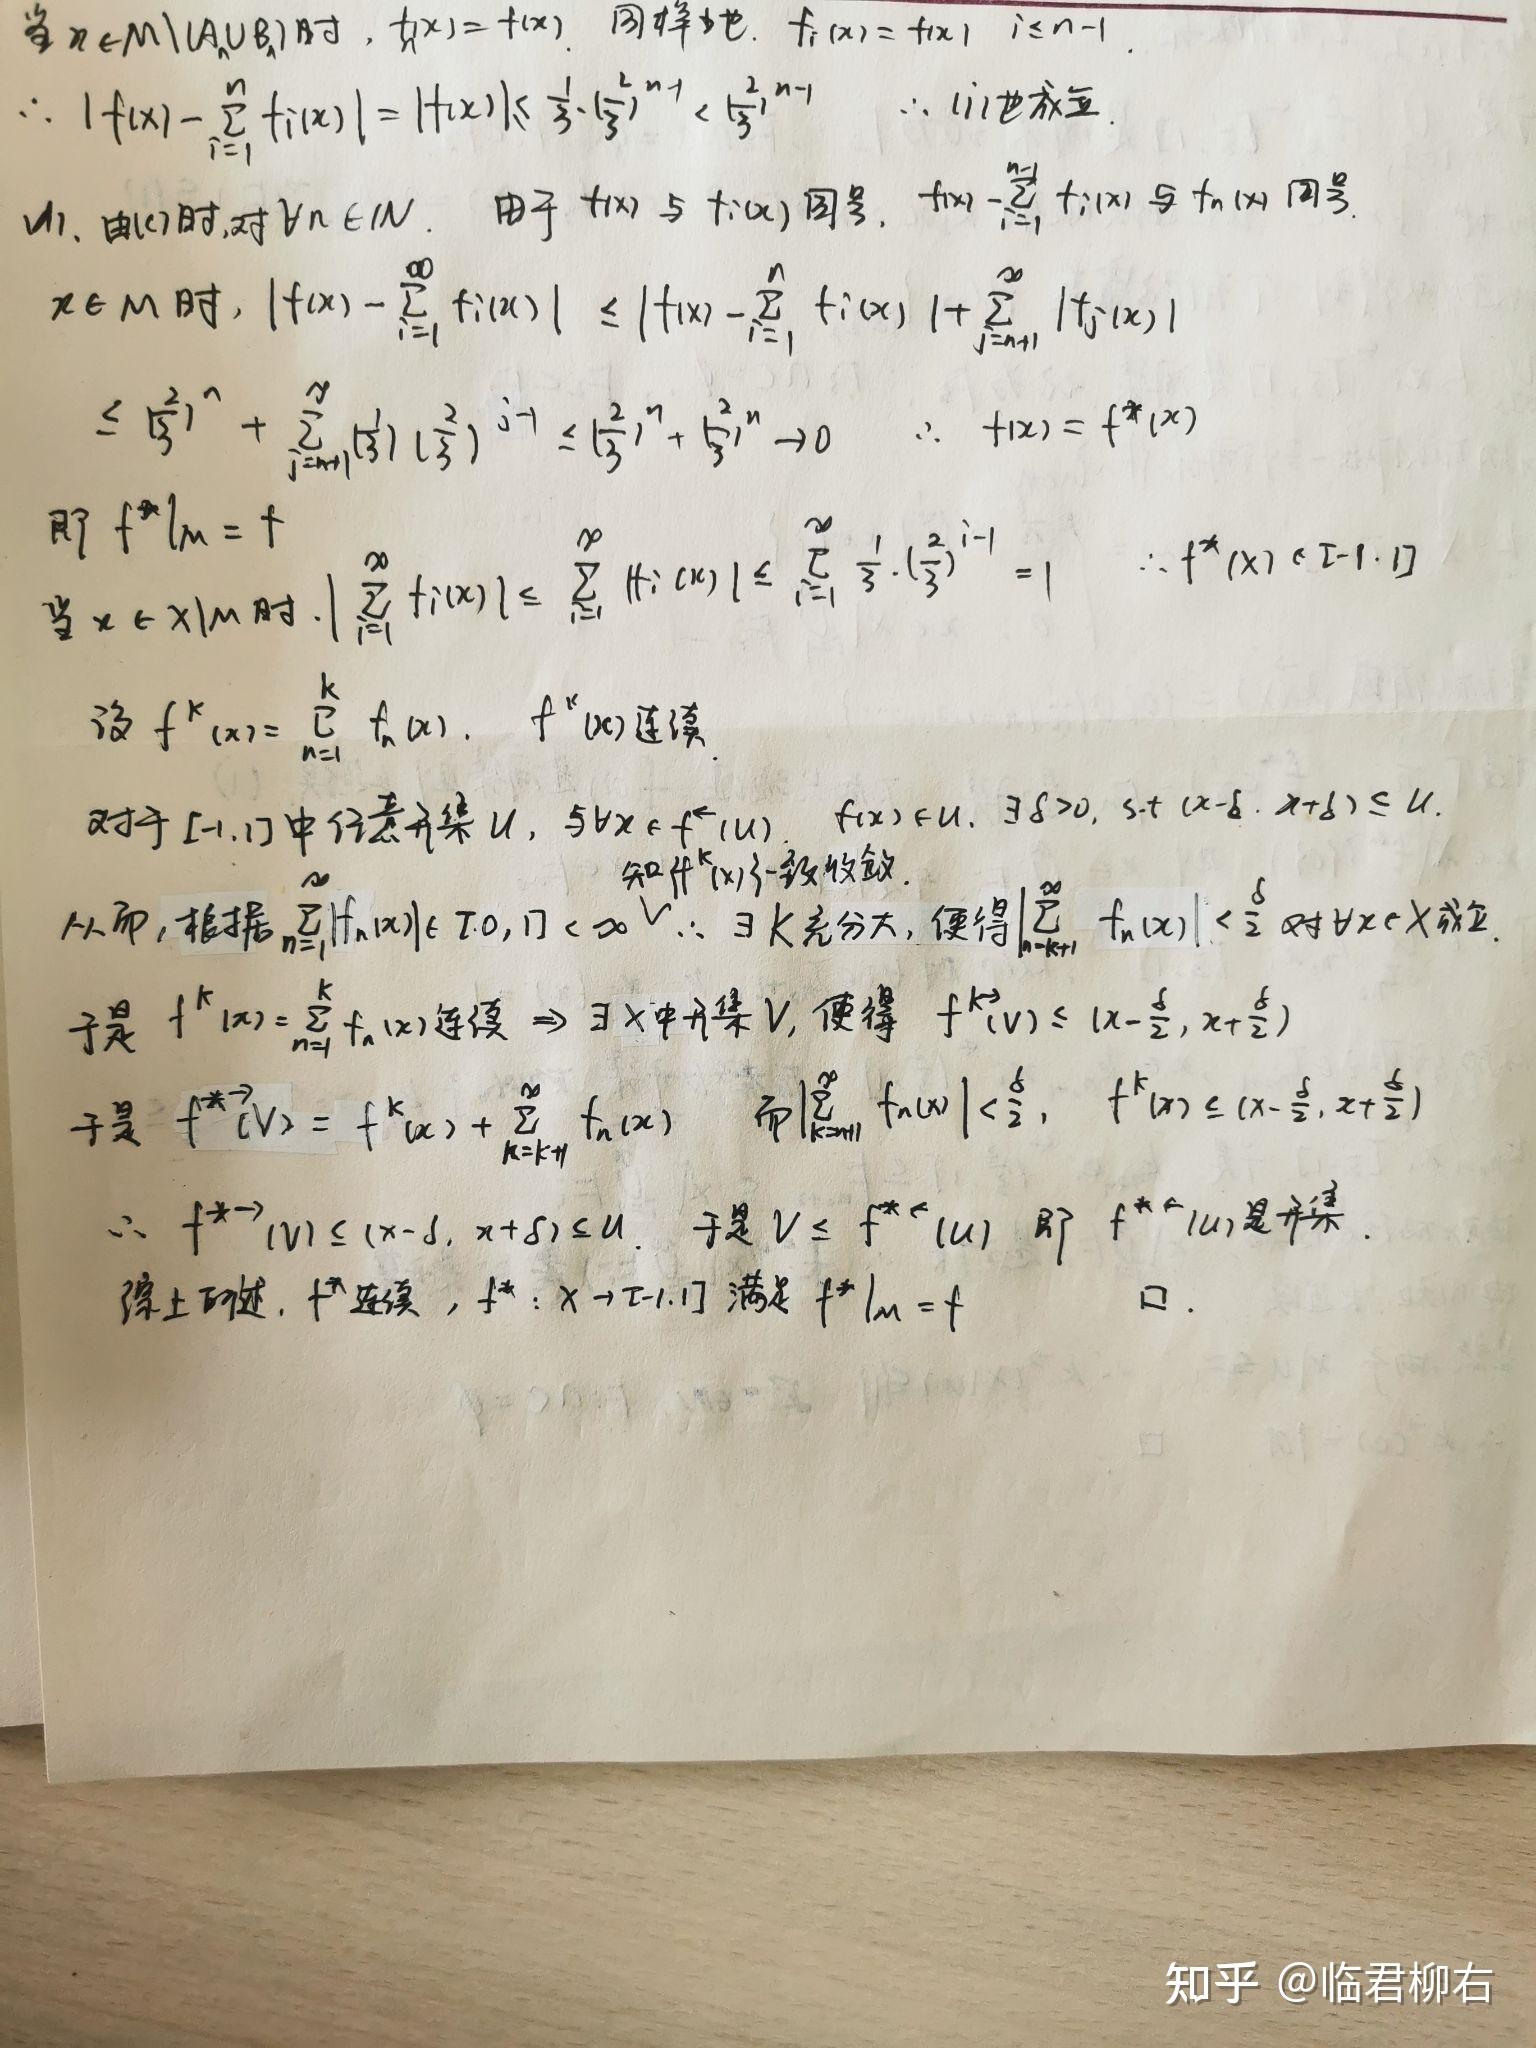 当 x∈M\(Aₙ∪Bₙ)时, fₙ(x)=f(x). 同样地. fᵢ(x)=f(x) i≤n-1.
∴ |f(x)-∑_{i=1}^{n} fᵢ(x)|=|f(x)|≤ 1/3·(2/3)^{n-1} < (2/3)^{n-1} ∴ (i)也成立.
时,对∀n∈IN. 由于 f(x) 与 fᵢ(x) 同号, f(x)-∑_{i=1}^{n-1} fᵢ(x) 与 fₙ(x) 同号.
x∈M 时, |f(x)-∑_{i=1}^{∞} fᵢ(x)| ≤ |f(x)-∑_{i=1}^{n} fᵢ(x)|+∑_{j=n+1}^{∞} |fⱼ(x)|
≤ (2/3)^n + ∑_{j=n+1}^{∞} (1/3)(2/3)^{j-1} ≤ (2/3)^n + (2/3)^n →0 ∴ f(x)=f*(x)
即 f*|_M = f
当 x∈X\M 时. |∑_{i=1}^{∞} fᵢ(x)| ≤ ∑_{i=1}^{∞} |fᵢ(x)| ≤ ∑_{i=1}^{∞} 1/3·(2/3)^{i-1} = 1 ∴ f*(x)∈[-1.1]
设 f^k(x)=∑_{n=1}^{k} fₙ(x). f^k(x)连续.
对于[-1,1]中任意开集U, 与∀x∈f^←(U). f(x)∈U. ∃δ>0, s.t (x-δ. x+δ)⊆U.
知{f^k(x)}一致收敛.
从而, 根据∑_{n=1}^{∞}|fₙ(x)|∈[0,1]<∞ ∨ ∴ ∃K充分大, 使得|∑_{n=k+1}^{∞} fₙ(x)|<δ/2 对∀x∈X成立.
于是 f^k(x)=∑_{n=1}^{k} fₙ(x)连续 ⇒ ∃X中开集V, 使得 f^{k→}(V)⊆(x-δ/2, x+δ/2)
于是 f*^→(V)= f^k(x)+∑_{k=k+1}^{∞} fₙ(x) 而|∑_{k=n+1}^{∞} fₙ(x)|<δ/2, f^k(x)⊆(x-δ/2, x+δ/2)
∴ f*^→(V)⊆(x-δ, x+δ)⊆U. 于是V⊆f*^←(U) 即 f*^←(U)是开集.
综上所述. f*连续, f*: X→[-1.1] 满足 f*|_M=f □.
知乎 @临君柳右